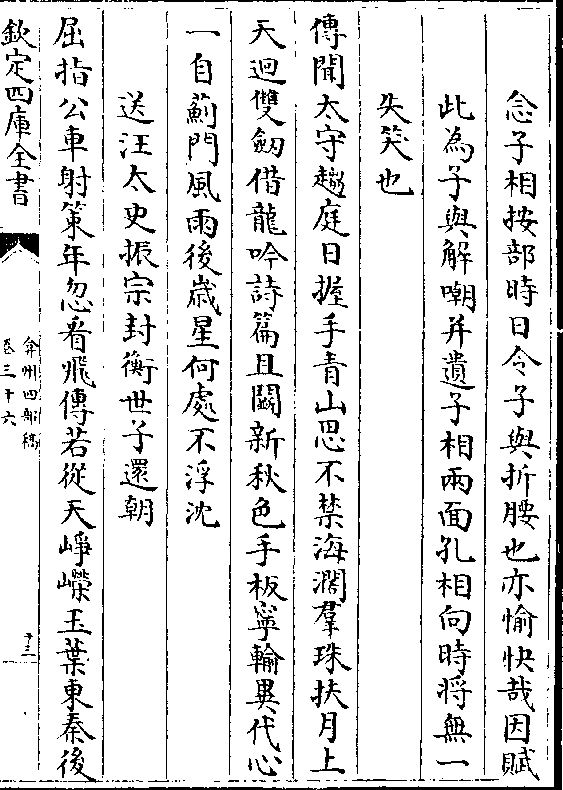 念子相按部時日令子與折腰也亦愉快哉因賦
此為子與解嘲并遺子相兩面孔相向時將無一
失笑也
傳聞太守趨庭日握手青山思不禁海濶羣珠扶月上
天迴雙劒借龍吟詩篇且鬭新秋色手板寧輸異代心
一自薊門風雨後歲星何處不浮沈
送汪太史振宗封衡世子還朝
屈指公車射策年忽看飛傳若從天崢嶸玉葉東秦後
欽定四庫全書
弇州四部稿
卷三十六
十三